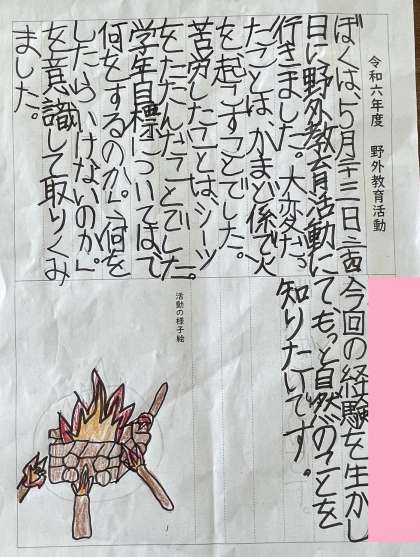 令和六年度　野外教育活動
ぼくは、5月二十三日、二十四
日に野外教育活動に
行きました。大変だっ
たことは、かまど係で火
を起こすことでした。
苦労したことは、シーツ
をたたんだことでした。
学年目標については、
何をするのか。」「何を
したらいけないのか。」
を意識して取りくみ
ました。
今回の経験を生かし
てもっと自然のことを
知りたいです。
活動の様子絵